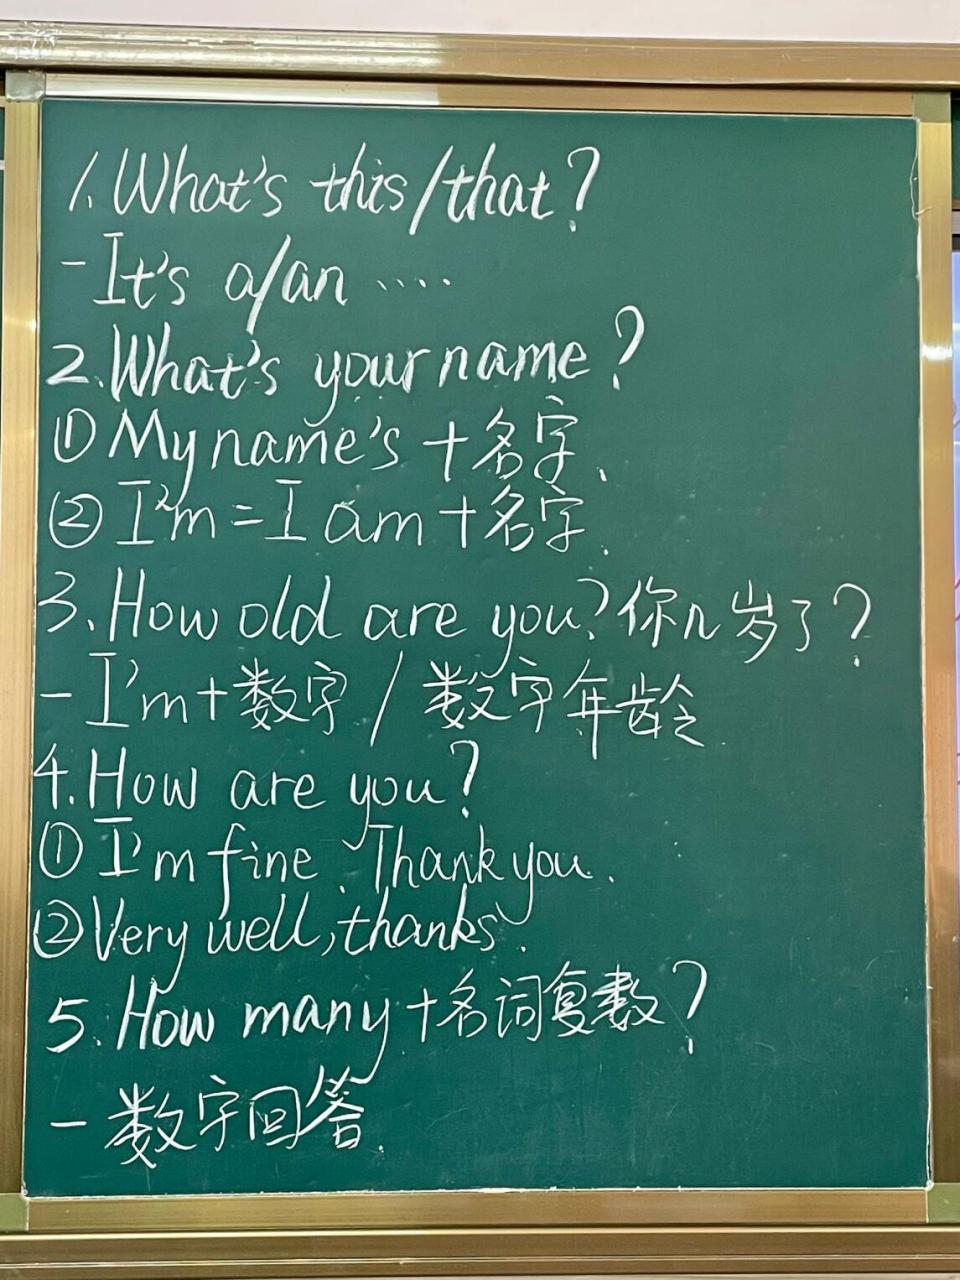 1. What's this/that?
- It's a/an ....
2. What's your name?
① My name's + 名字.
② I'm = I am + 名字.
3. How old are you? 你几岁了?
- I'm + 数字 / 数字年龄.
4. How are you?
① I'm fine. Thank you.
② Very well, thanks.
5. How many + 名词复数?
- 数字回答.